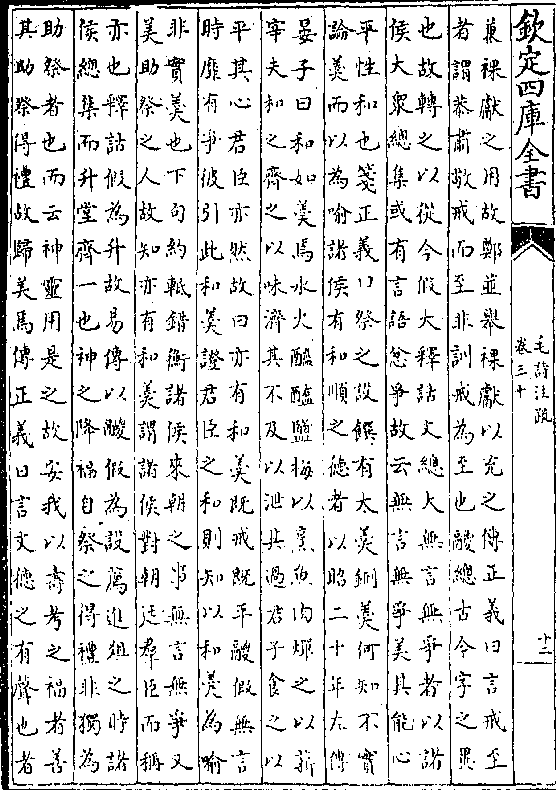 欽定四庫全書
毛詩注疏
卷三十
十二
兼祼獻之用故鄭並舉祼獻以充之傳正義曰言戒至
者謂恭肅敬戒而至非訓戒為至也鬷總古今字之異
也故轉之以從今假大釋詁文總大無言無爭者以諸
侯大衆總集或有言語忿爭故云無言無爭美其能心
平性和也箋正義曰祭之設饌有大羮鉶羮何知不實
論羮而以為喻諸侯有和順之徳者以昭二十年左傳
晏子曰和如羮焉水火醯醢鹽梅以烹魚肉燀之以薪
宰夫和之齊之以味濟其不及以洩其過君子食之以
平其心君臣亦然故曰亦有和羮既戒既平鬷假無言
時靡有爭彼引此和羮證君臣之和則知以和羮為喻
非實羮也下句約軧錯衡諸侯來朝之事無言無爭又
美助祭之人故知亦有和羮謂諸侯對朝廷羣臣而稱
亦也釋詁假為升故易傳以鬷假為設薦進俎之時諸
侯總集而升堂齊一也神之降福自祭之得禮非獨為
助祭者也而云神靈用是之故安我以壽考之福者善
其助祭得禮故歸美焉傳正義曰言文徳之有聲也者